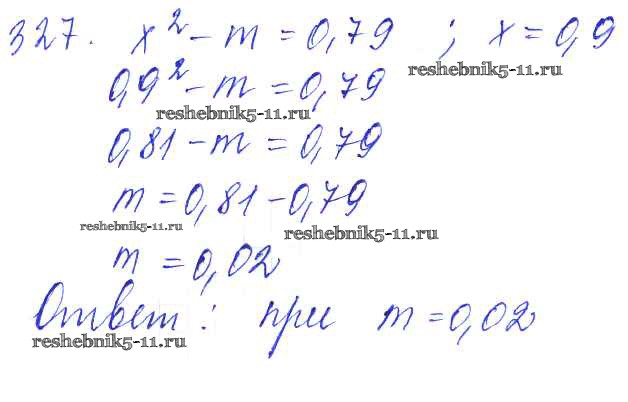 327. x² - m = 0,79 ; x = 0,9
reshebnik5-11.ru
0,9² - m = 0,79
reshebnik5-11.ru
0,81 - m = 0,79
m = 0,81 - 0,79
reshebnik5-11.ru
reshebnik5-11.ru
m = 0,02
Ответ: при m = 0,02
reshebnik5-11.ru